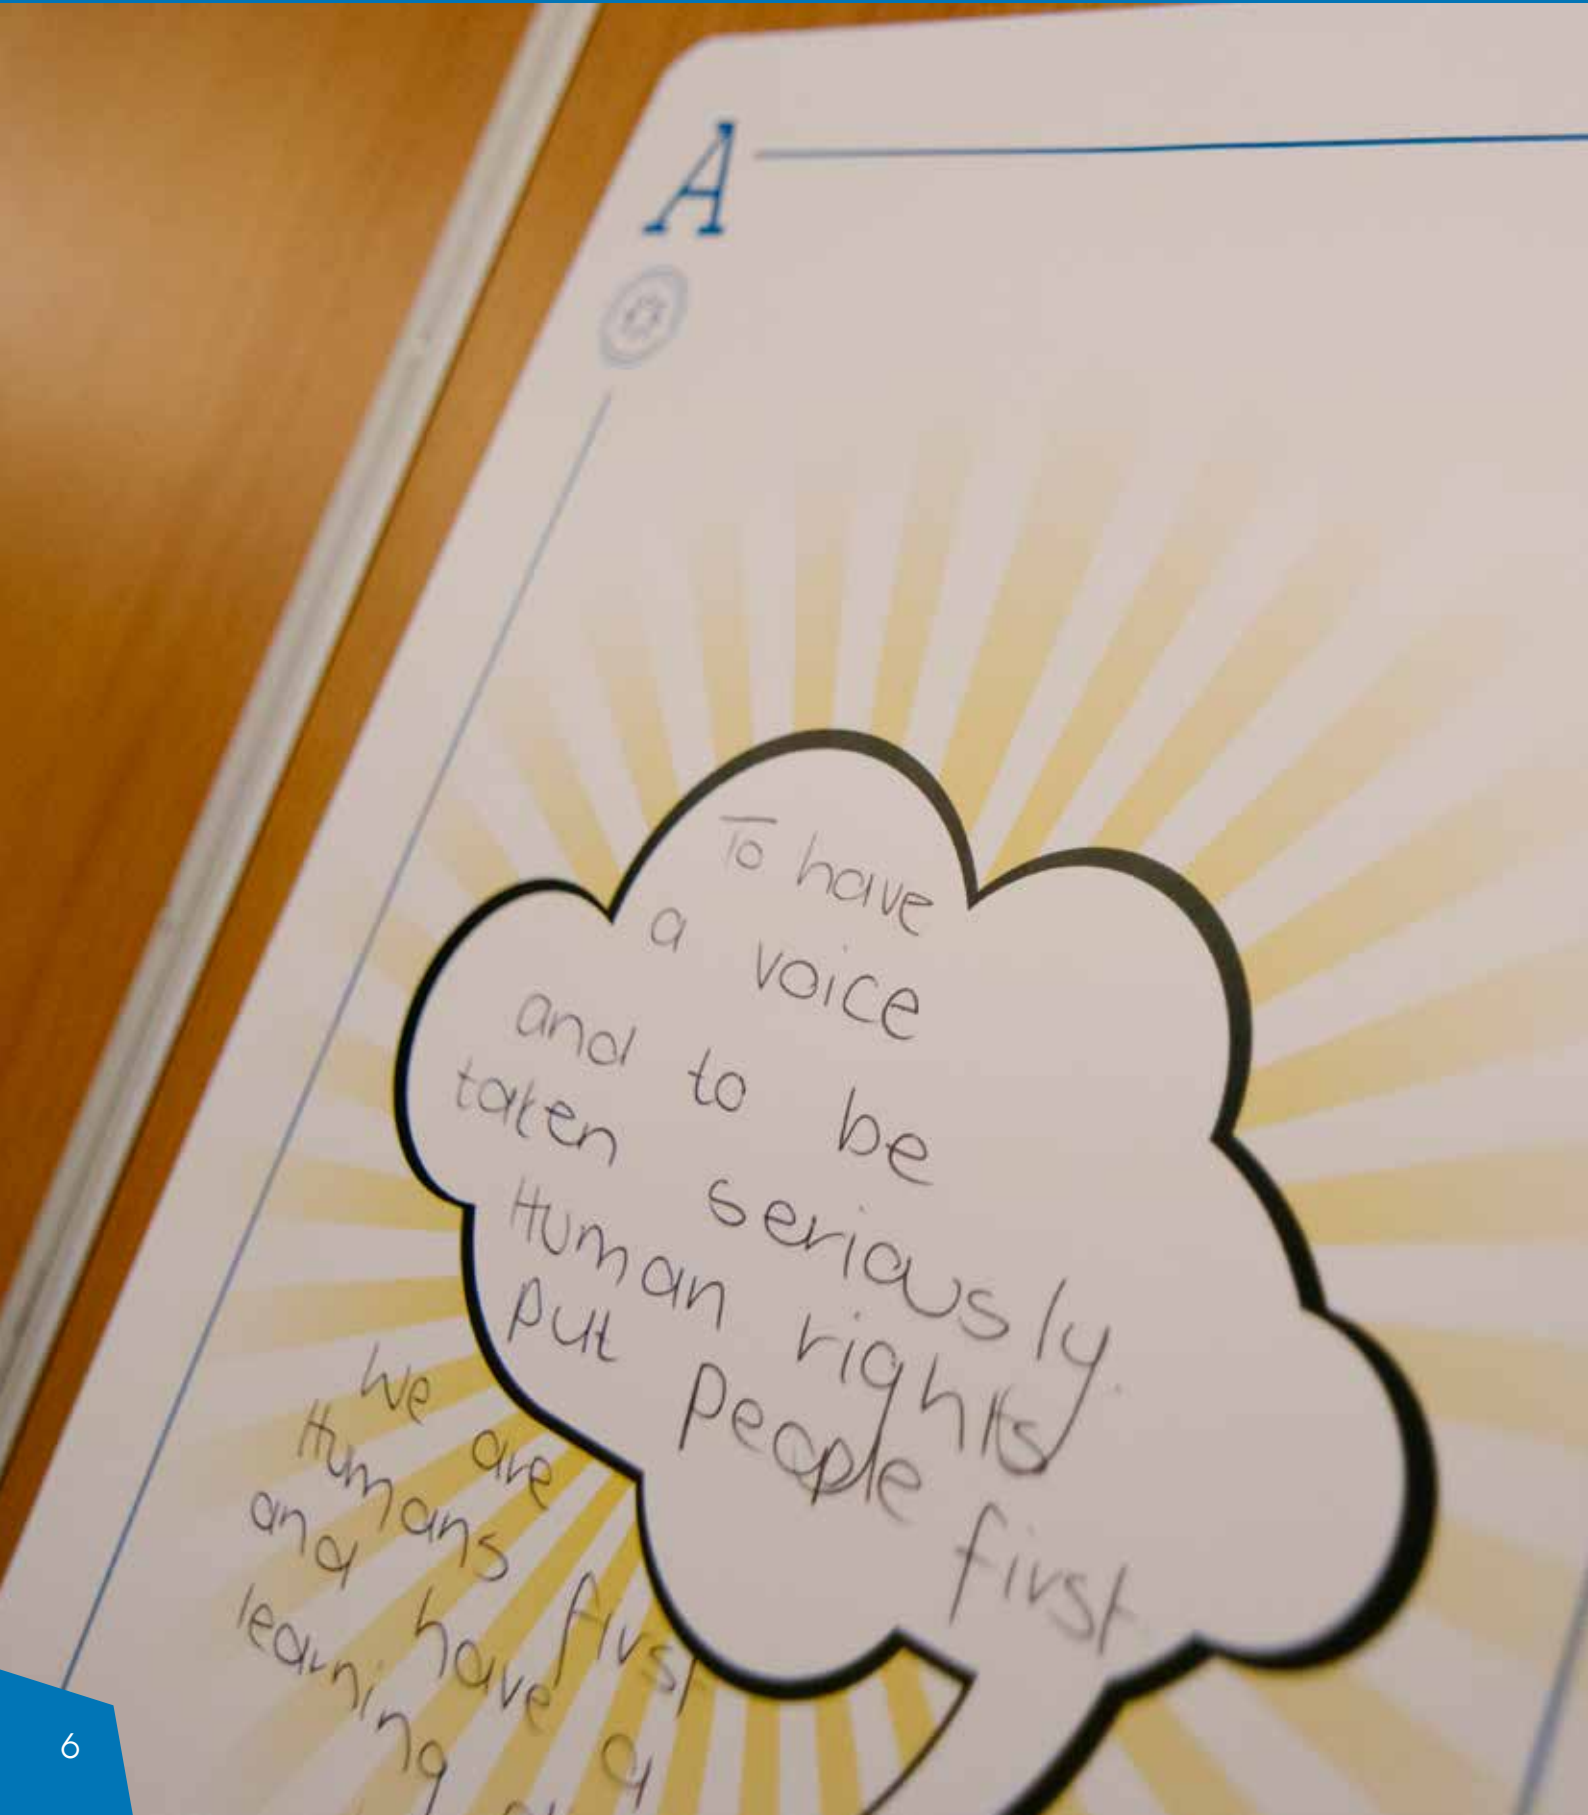 A
To have
a voice
and to be
taken seriously.
Human rights
put people first
We are
Humans first
and have a
learning
6